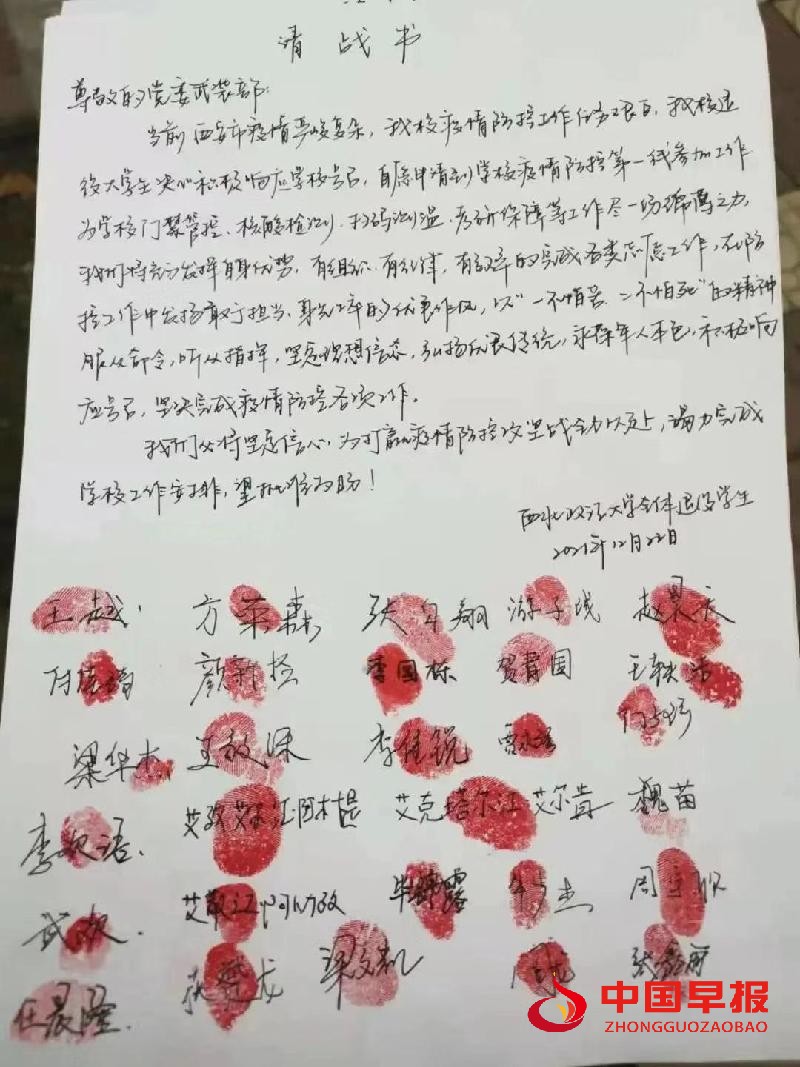 请战书
尊敬的党委武装部:
当前西安市疫情严峻复杂，我校疫情防控工作任务艰巨，我校退
役大学生决心积极响应学校号召，自愿申请到学校疫情防控第一线参加工作
为学校门禁管控、核酸检测、扫码测温、后勤保障等工作尽一份绵薄之力，
我们将充分发挥自身优势，有组织、有纪律，有效率的完成各类志愿工作，在防
控工作中发扬敢于担当、身先士卒的优良作风，以“一不怕苦、二不怕死”的精神
服从命令，听从指挥，坚定理想信念，弘扬优良传统，永葆军人本色，积极响
应号召，坚决完成疫情防控各项工作。
我们必将坚定信心，为打赢疫情防控攻坚战全力以赴，竭力完成
学校工作安排，望批准为盼！
西北政法大学全体退役学生
2021年12月22日
王越 方 森 张 翔 游子 赵晨
颜新 李国栋 贺晋国 王轶
梁华杰 王 李佳锐
李欣语 艾克塔尔江·艾尔肯 魏苗
武 毕 牛 杰 周
任晨隆 楚龙 梁文凯 周龙 张
中国早报
ZHONGGUOZAOBAO